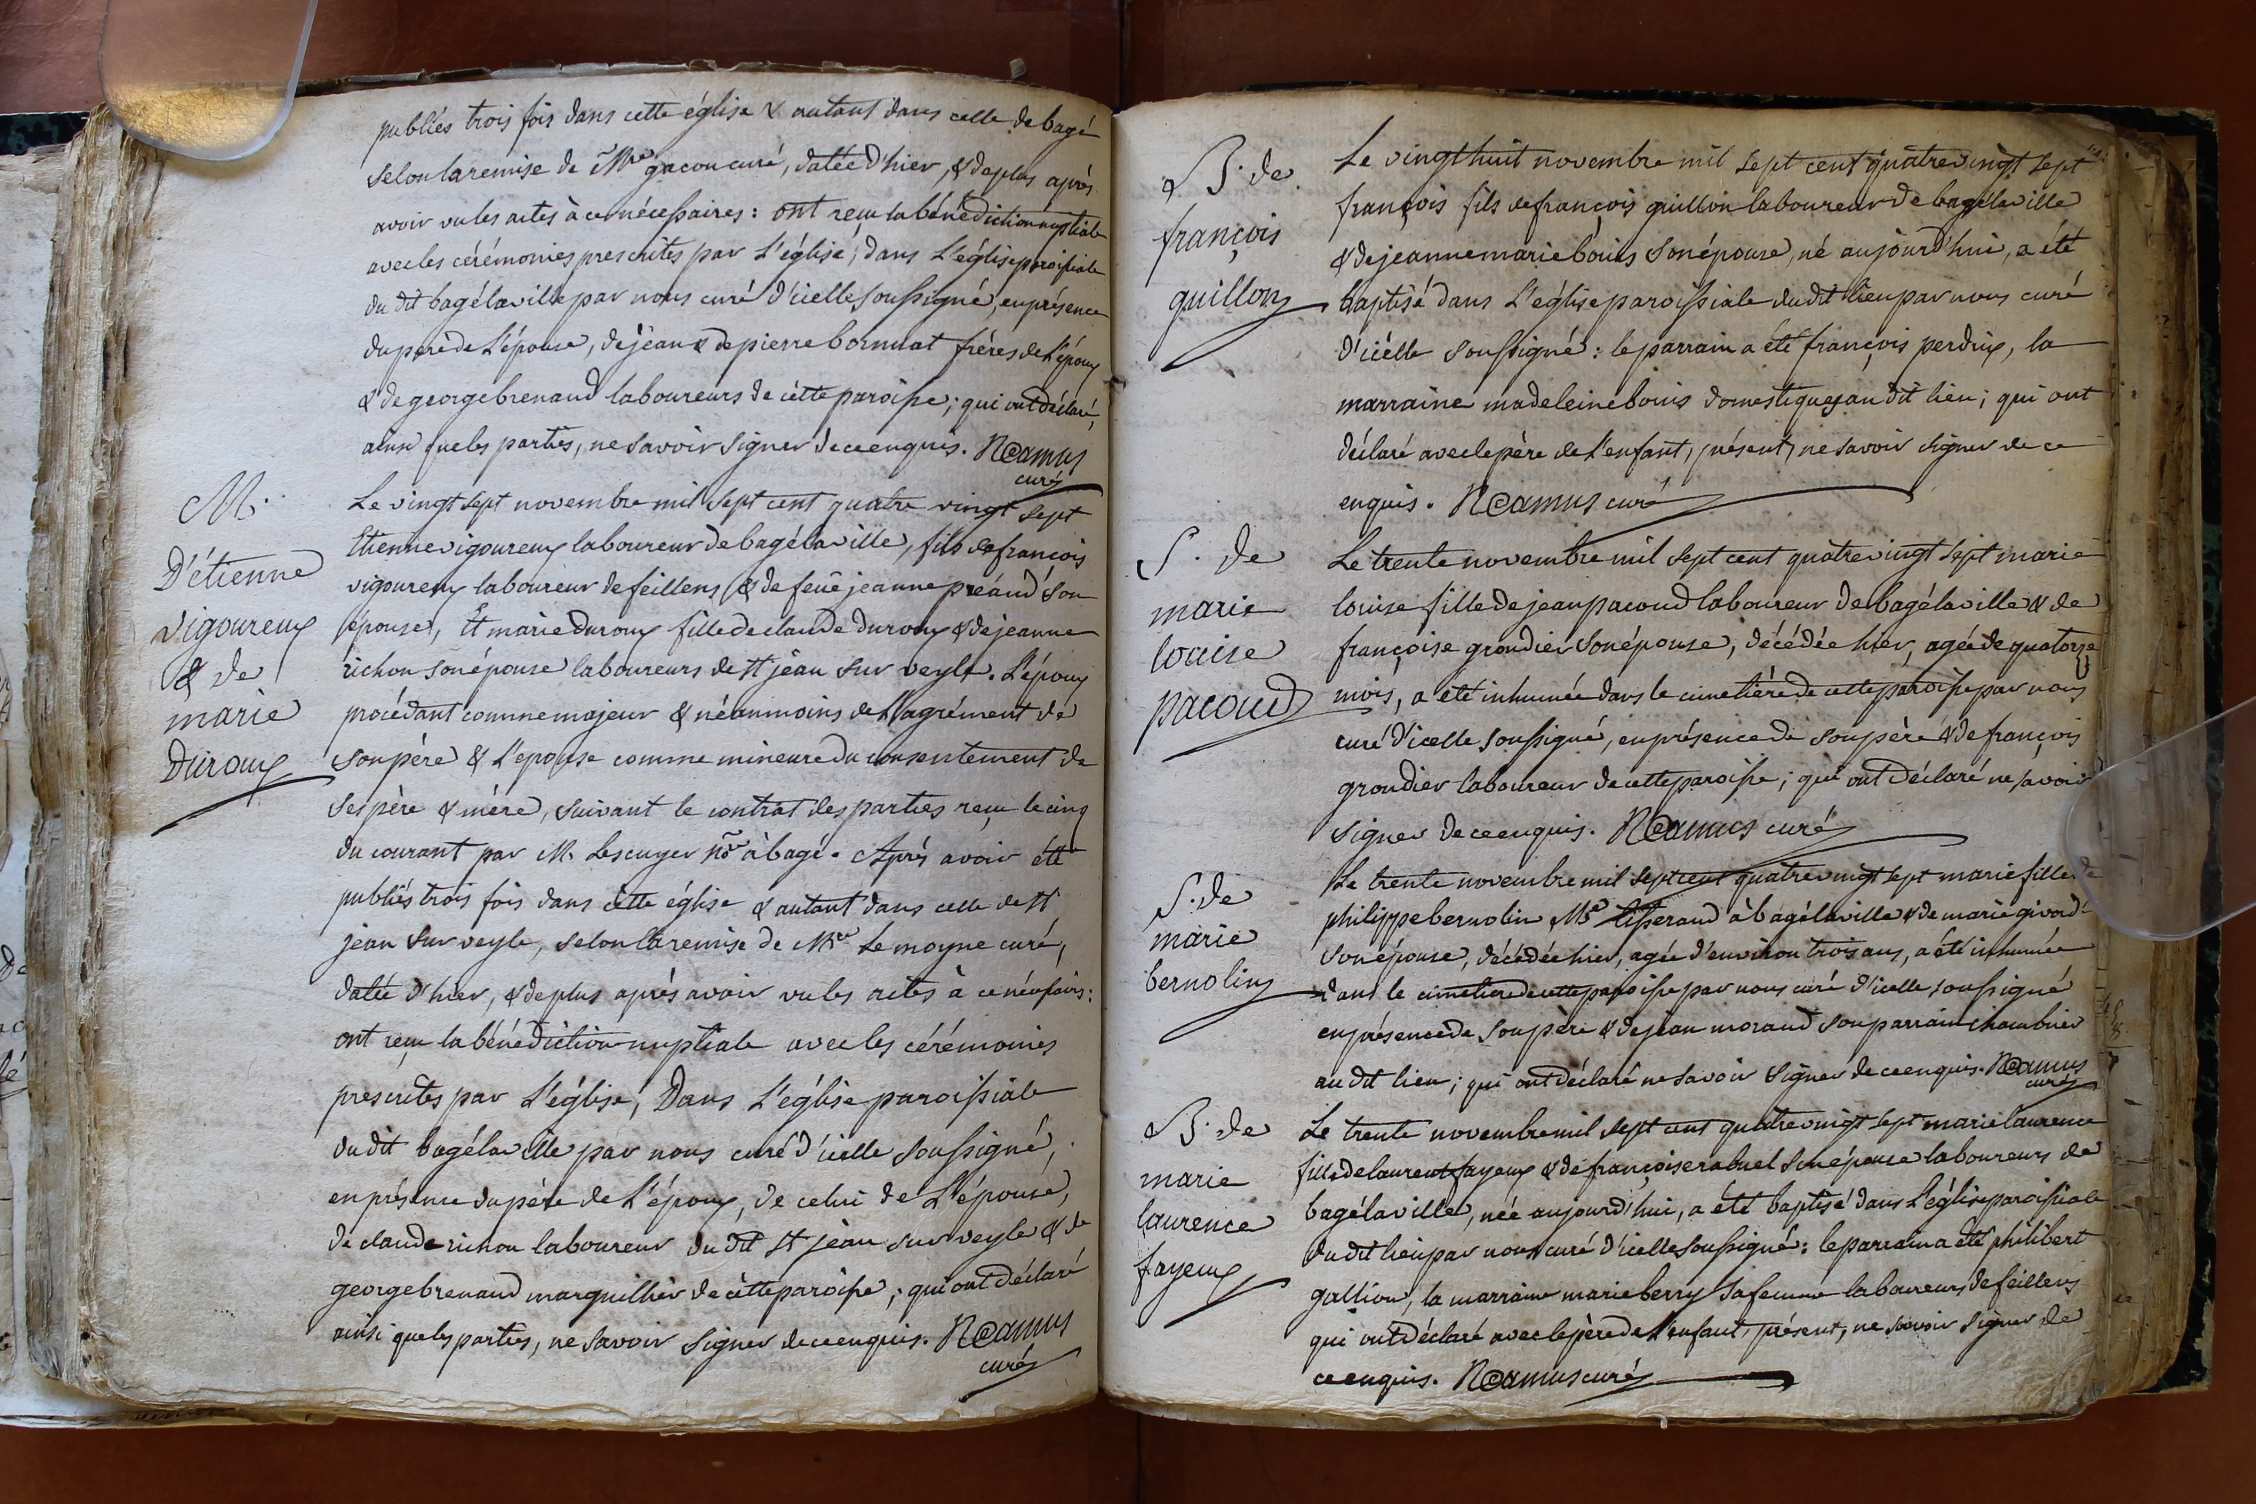 publiés trois fois dans cette église & autant dans celle de bagé
selon la remise de Mre gacon curé, datée d'hier, & de plus après
avoir vu les actes à ce nécessaires : ont reçu la bénédiction nuptiale
avec les cérémonies prescrites par L'église, dans L'église paroissiale
du dit bagélaville par nous curé d'icelle soussigné, en présence
du père de L'épouse, de jean & de pierre bornuat frères de L'époux
& de george brenaud laboureurs de cette paroisse ; qui ont déclaré,
ainsi que les parties, ne savoir signer de ce enquis. NCamus
curé
M.
D'étienne
vigoureux
& de
marie
Duroux
Le vingt sept novembre mil sept cent quatre vingt sept
Etienne vigoureux laboureur de bagélaville, fils de françois
vigoureux laboureur de feillens & de feüe jeanne préaud son
épouse, Et marie duroux fille de claude duroux & de jeanne
richon son épouse laboureurs de st jean sur veyle. L'époux
procédant comme majeur & néanmoins de l'agrément de
son père & L'epouse comme mineure du consentement de
ses père & mère, suivant le contrat des parties reçu le cinq
du courant par M. Lescuyer nore à bagé. Après avoir été
publiés trois fois dans cette église & autant dans celle de st
jean sur veyle, selon la remise de Mre Le moyne curé,
datée d'hier, & de plus après avoir vu les actes à ce nécessaires :
ont reçu la bénédiction nuptiale avec les cérémonies
prescrites par L'église, Dans L'église paroissiale
du dit bagélaville par nous curé d'icelle soussigné,
en présence du père de L'époux, de celui de L'épouse,
de claude richon laboureur du dit st jean sur veyle & de
george brenaud marguillier de cette paroisse ; qui ont déclaré
ainsi que les parties, ne savoir signer de ce enquis. NCamus
curé
B. de
françois
guillon
Le vingt huit novembre mil sept cent quatre vingt sept
françois fils de françois guillon laboureur de bagélaville
& de jeanne marie boüis son épouse, né aujourd'hui, a été
baptisé dans L'eglise paroissiale du dit lieu par nous curé
d'icelle soussigné : le parrain a été françois perdrix, la
marraine madeleine boüis domestiques au dit lieu ; qui ont
déclaré avec le père de L'enfant, présent, ne savoir signer de ce
enquis. NCamus curé
S. de
marie
louise
pacoud
Le trente novembre mil sept cent quatre vingt sept marie
louise fille de jean pacoud laboureur de bagélaville & de
françoise grondier son épouse, décédée hier, agée de quatorze
mois, a été inhumée dans le cimetière de cette paroisse par nous
curé d'icelle soussigné, en présence de son père & de françois
grondier laboureur de cette paroisse ; qui ont déclaré ne savoir
signer de ce enquis. NCamus curé
S. de
marie
bernolin
Le trente novembre mil sept cent quatre vingt sept marie fille de
philippe bernolin Me tisserand à bagélaville & de marie givord
son épouse, décédée hier, agée d'environ trois ans, a été inhumée
dans le cimetiere de cette paroisse par nous curé d'icelle soussigné
en présence de son père & de jean moraud son parrain chambrier
au dit lieu ; qui ont déclaré ne savoir signer de ce enquis. NCamus
curé
B. de
marie
laurence
fayeux
Le trente novembre mil sept cent quatre vingt sept marie laurence
fille de laurent fayeux & de françoise rabuel son épouse laboureurs de
bagélaville, née aujourd'hui, a été baptisé dans L'église paroissiale
du dit lieu par nous curé d'icelle soussigné : le parrain a été philibert
gallion, la marraine marie berry sa femme laboureurs de feillens
qui ont déclaré avec le père de L'enfant, présent, ne savoir signer de
ce enquis. NCamus curé